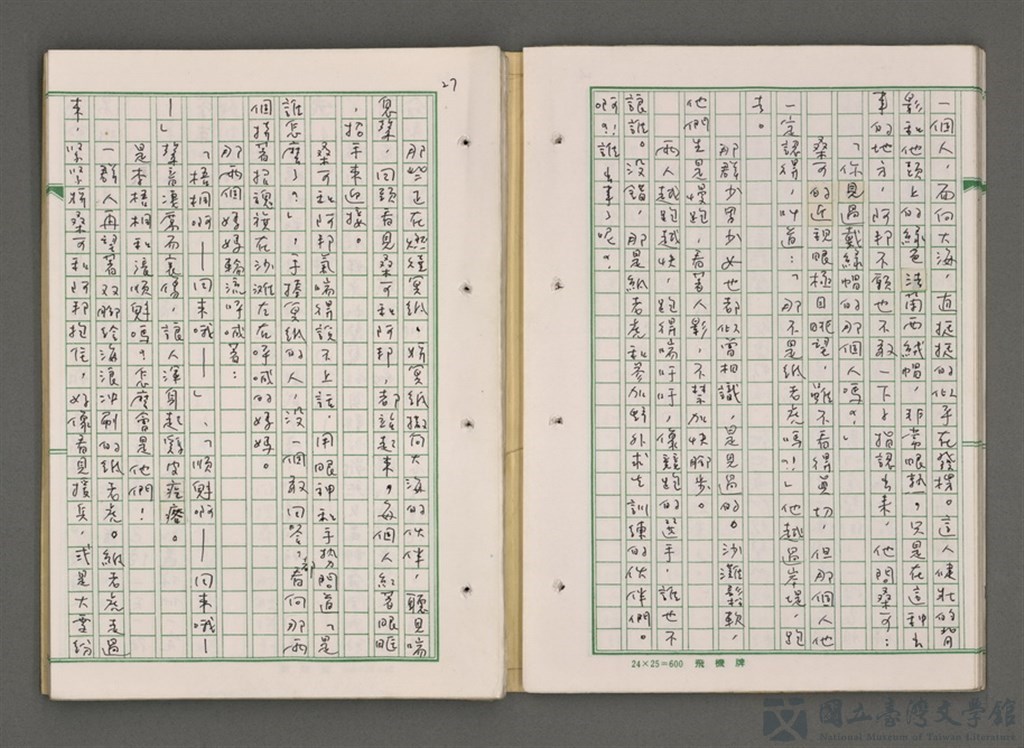 一個人，面向大海，直挺挺的似乎在發楞。這人健壯的背
影和他頭上的綠色法蘭西絨帽，非常眼熟，只是在這種出
事的地方，阿邦不願也不敢一下子指認出來，他問桑可：
「你見過戴綠帽的那個人嗎？」
桑可的近視眼極目眺望，雖不看得真切，但那個人他
一定認得，叫道：「那不是紙老虎嗎？！」他越過岸堤，跑
去。
那群少男少女也都似曾相識，是見過的。沙灘鬆軟，
他們先是慢跑，看著人影，不禁加快腳步。
兩人越跑越快，跑得喘吁吁，像競跑的選手，誰也不
讓誰。沒錯，那是紙老虎和參加野外求生訓練的伙伴們。
啊？！誰出事了呢？
24×25=600 飛機牌
27
那些正在燃燒冥紙，將冥紙撒向大海的伙伴，聽見喘
息聲，回頭看見桑可和阿邦，都站起來，每個人紅著眼眶
，招手來迎接。
桑可和阿邦氣喘得說不上話，用眼神和手勢問道「是
誰怎麼了？」，手捧冥紙的人，沒一個敢回答，都看向那兩
個揹著招魂旗在沙灘左右呼喊的媽媽。
那兩個媽媽輪流呼喊著：
「梧桐啊—回來哦—」、「順魁啊—回來哦—
—」聲音淒厲而哀傷，讓人渾身起雞皮疙瘩。
是李梧桐和凌順魁嗎？怎麼會是他們！
一群人再望著雙腳給海浪沖刷的紙老虎。紙老虎走過
來，緊緊將桑可和阿邦抱住，好像看見援兵，或是大受紛
國立臺灣文學館
National Museum of Taiwan Literature